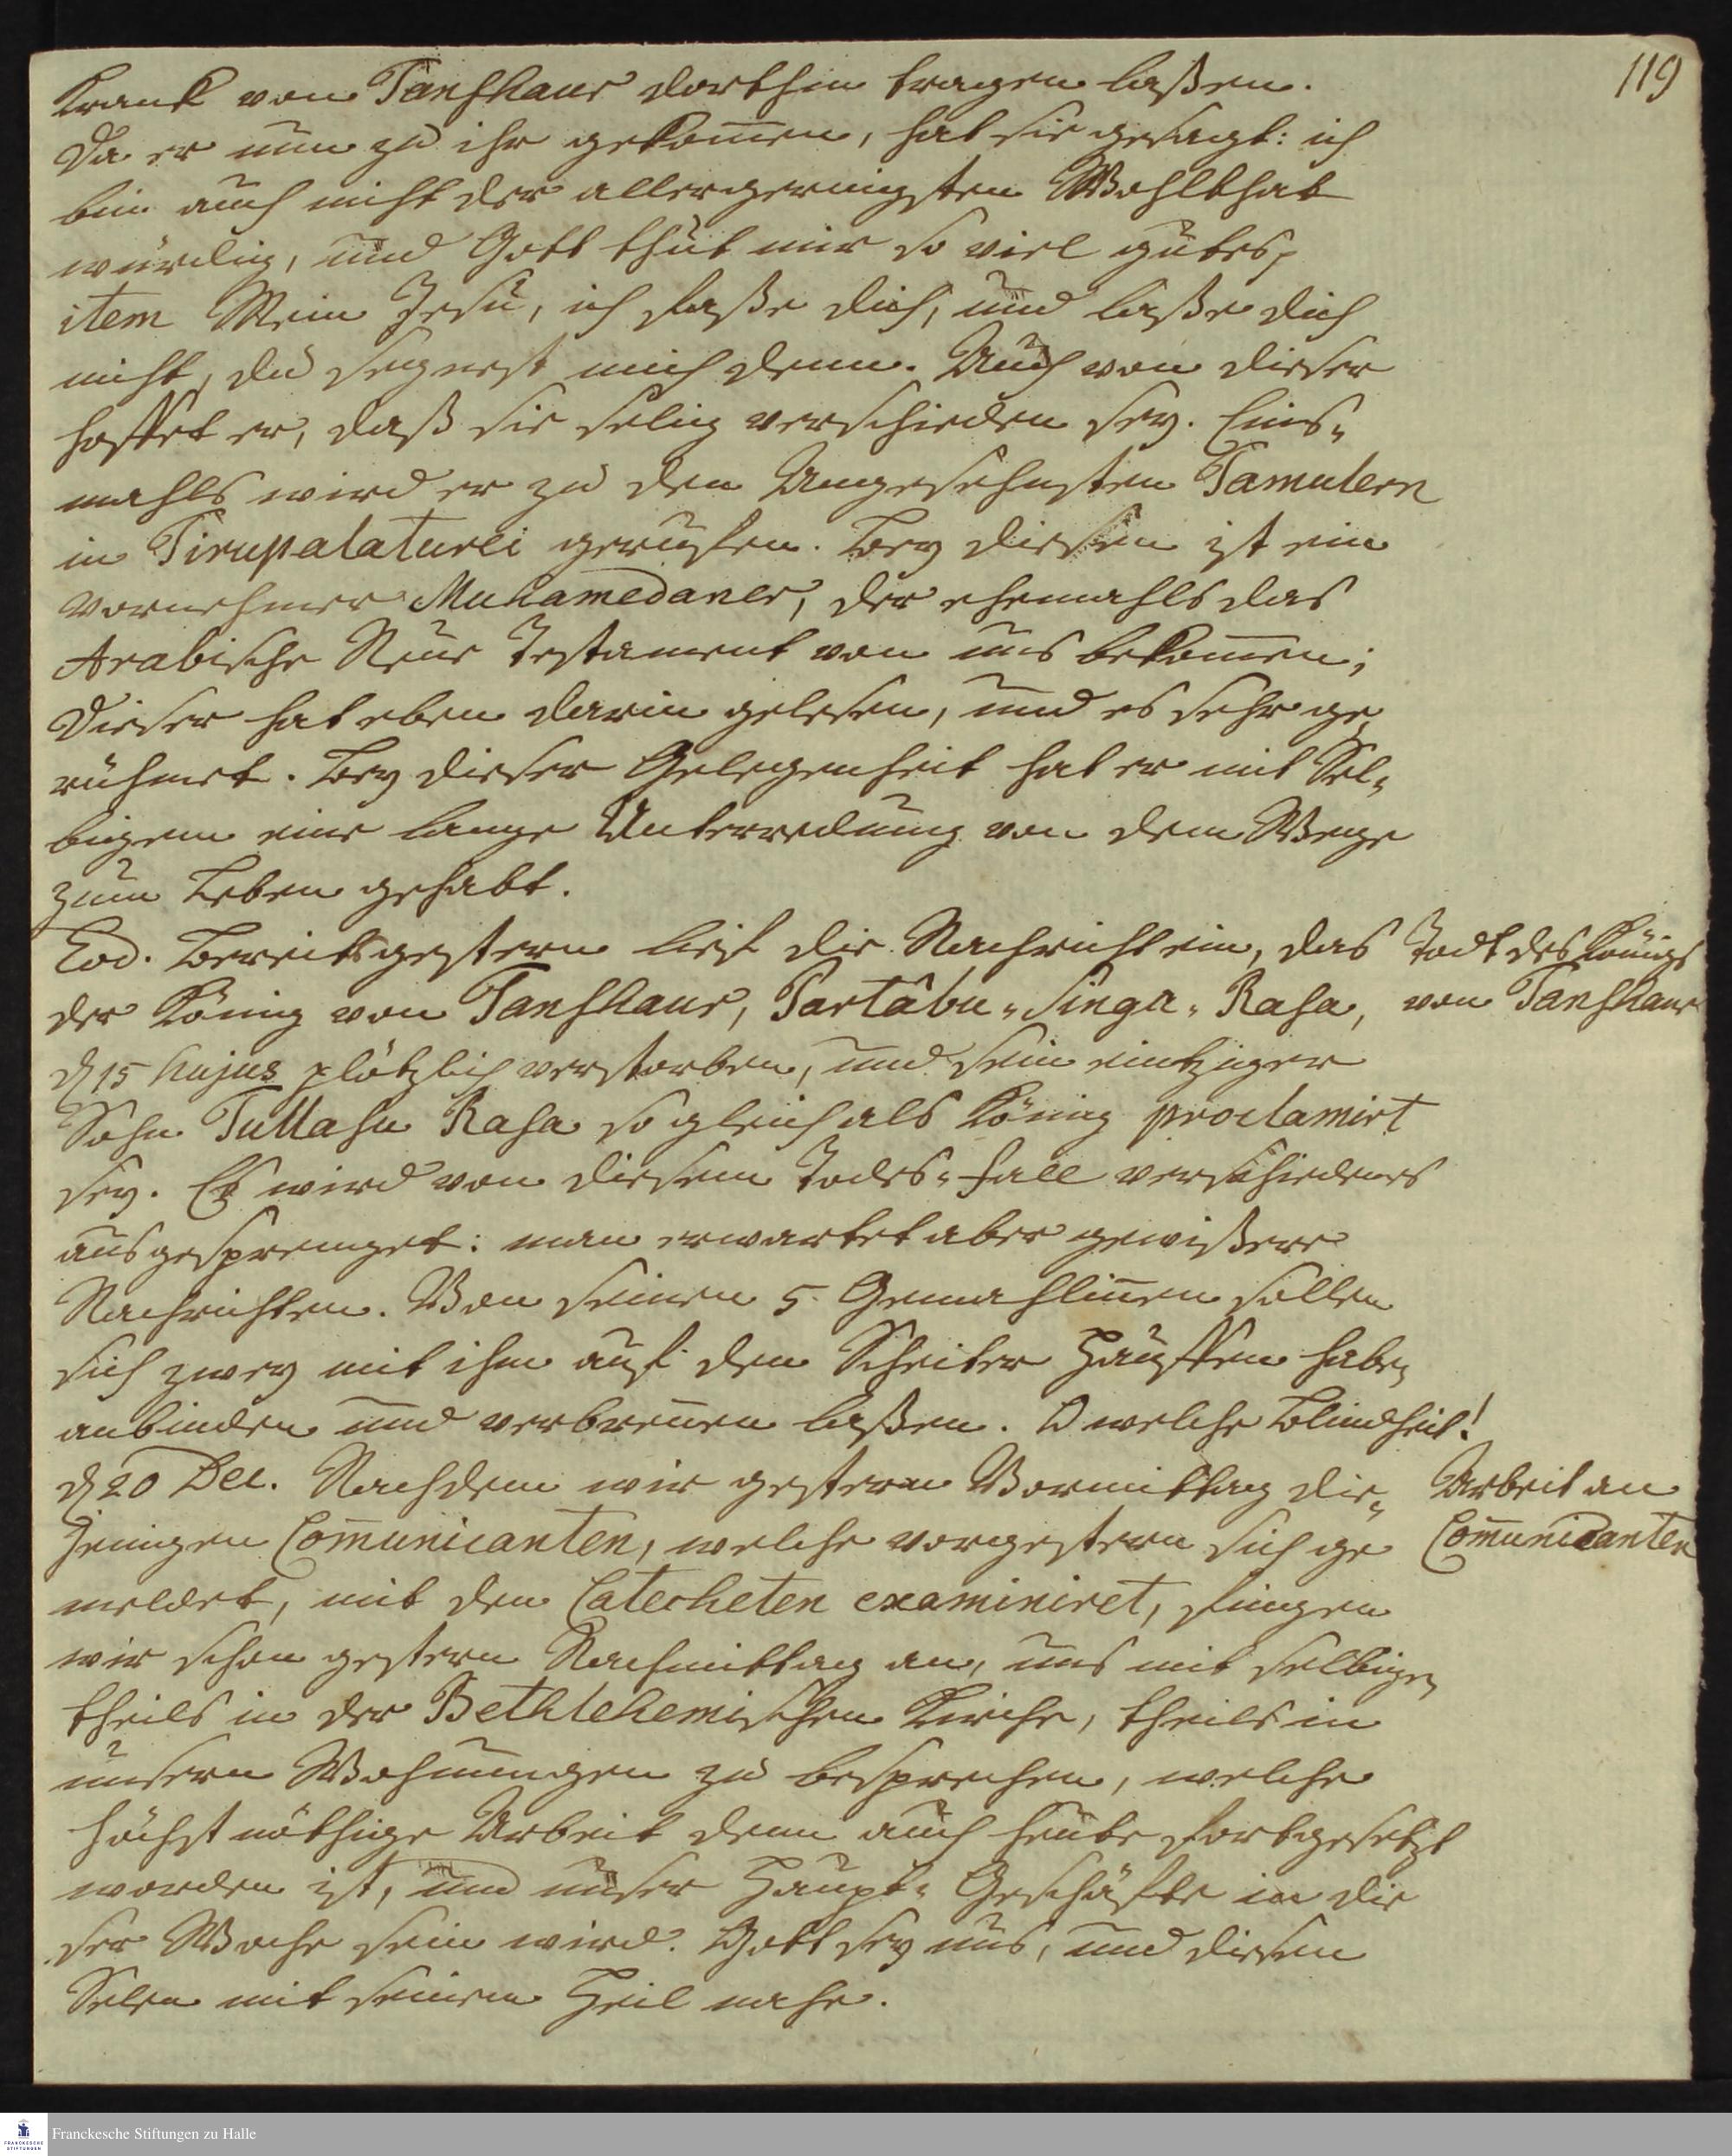 119
krank von Tanshaur dorthin tragen laßen.
Da er nun zu ihr gekom̄en, hat sie gesagt: ich
bin auch nicht der allergeringsten Wohlthat
würdig, und Gott thut mir so viel gutes,
item Mein Jesu, ich faße dich, und laße dich
nicht, du segnest mich denn. Auch von dieser
hoffet er, daß sie selig verschieden sey. Eins-
mahls wird er zu den Angesehnsten Tamulern
in Tirupalaturei geruffen. Bey diesen ist ein
vornehmer Muhamedaner, der ehemahls das
Arabische Neue Testament von uns bekom̄en;
Dieser hat eben darin gelesen, und es sehr ge-
rühmet. Bey dieser Gelegenheit hat er mit Sel-
bigem eine lange Unterredung von dem Wege
zum Leben gehabt.
Eod. Bereits gestern lief die Nachricht ein, das
der König von Tanshaur, Partâbu-Singa-Rasa,
d 15 hujus plötzlich verstorben, und sein eintziger
Sohn Tullasu Rasa so gleich als König proclamirt
sey. Es wird von diesem Todes-Fall verschiedenes
ausgesprenget: man erwartet aber gewißere
Nachrichten. Von seinen 5 Gemahlin̄en sollen
sich zwey mit ihm auf den Scheiter Hauffen haben
anbinden und verbren̄en laßen. O welche Blindheit!
Todt des Königs
von Tanshaur
d 20 Dec. Nachdem wir gestern Vormittag die-
jenigen Com̄unicanten, welche vorgestern sich ge
meldet, mit den Catecheten examiniret, fingen
wir schon gestern Nachmittag an, uns mit selbigen
theils in der Bethlehemischen Kirche, theils in
unsern Wohnungen zu besprechen, welche
höchst nöthige Arbeit denn auch heute fortgesetzt
worden ist, und unser Haupt-Geschäfte in die
ser Woche sein wird. Gott sey uns, und diesen
Selen mit seinem Heil nahe.
Arbeit an
Com̄unicanten
FRANCKESCHE
STIFTUNGEN
Franckesche Stiftungen zu Halle